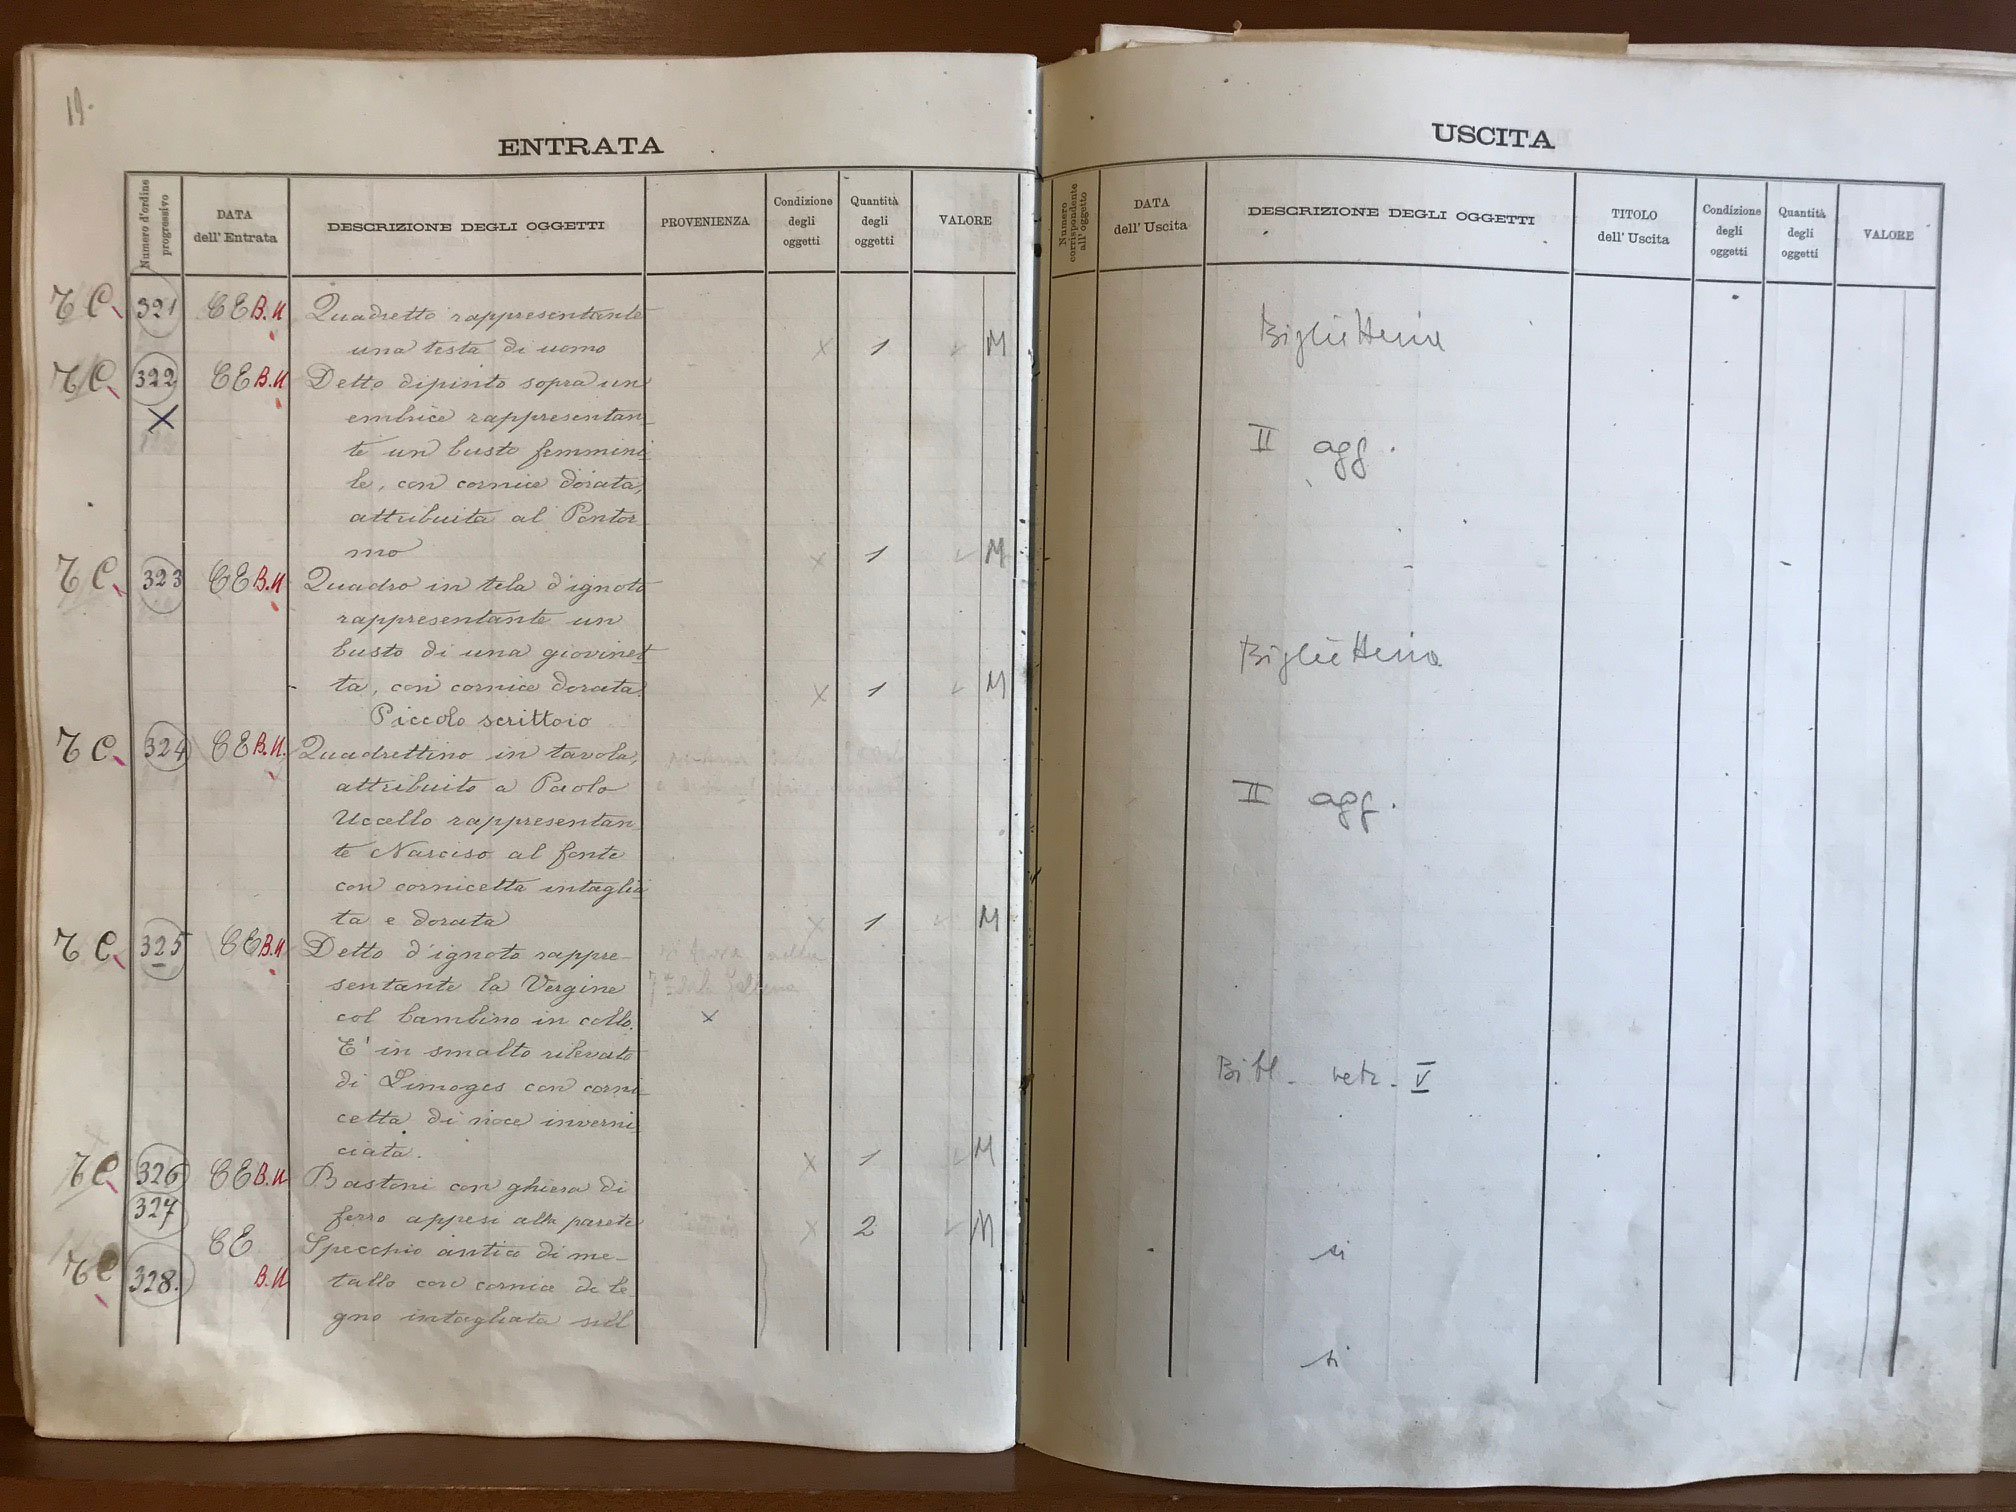 19.
ENTRATA
Numero d'ordine progressivo
DATA dell' Entrata
DESCRIZIONE DEGLI OGGETTI
PROVENIENZA
Condizione degli oggetti
Quantità degli oggetti
VALORE
T C 321 CE B.N Quadretto rappresentante
una testa di uomo X 1 M
T C 322 CE B.N Detto dipinto sopra un
X embrice rappresentan
te un busto femmini
le, con cornice dorata,
attribuita al Pontor
mo X 1 M
T C 323 CE B.N Quadro in tela d'ignoto
rappresentante un
busto di una giovinet
ta, con cornice dorata. X 1 M
Piccolo scrittoio
T C 324 CE B.N. Quadrettino in tavola,
attribuito a Paolo
Uccello rappresentan
te Narciso al fonte
con cornicetta intaglia
ta e dorata X 1 M
T C 325 CE B.N Detto d'ignoto rappre-
sentante la Vergine
col bambino in collo. X
E' in smalto rilevato
di Limoges con corni
cetta di noce inverni
ciata. X 1 M
T C 326 CE B.N Bastoni con ghiera di
327 ferro appesi alla parete X 2 M
CE Specchio antico di me-
T C 328. B.N tallo con cornice di le
gno intagliata sul
USCITA
Numero corrispondente all' oggetto
DATA dell' Uscita
DESCRIZIONE DEGLI OGGETTI
TITOLO dell' Uscita
Condizione degli oggetti
Quantità degli oggetti
VALORE
Biglietteria
II agg.
Biglietteria
II agg.
Bibl. vetr. V
si
si